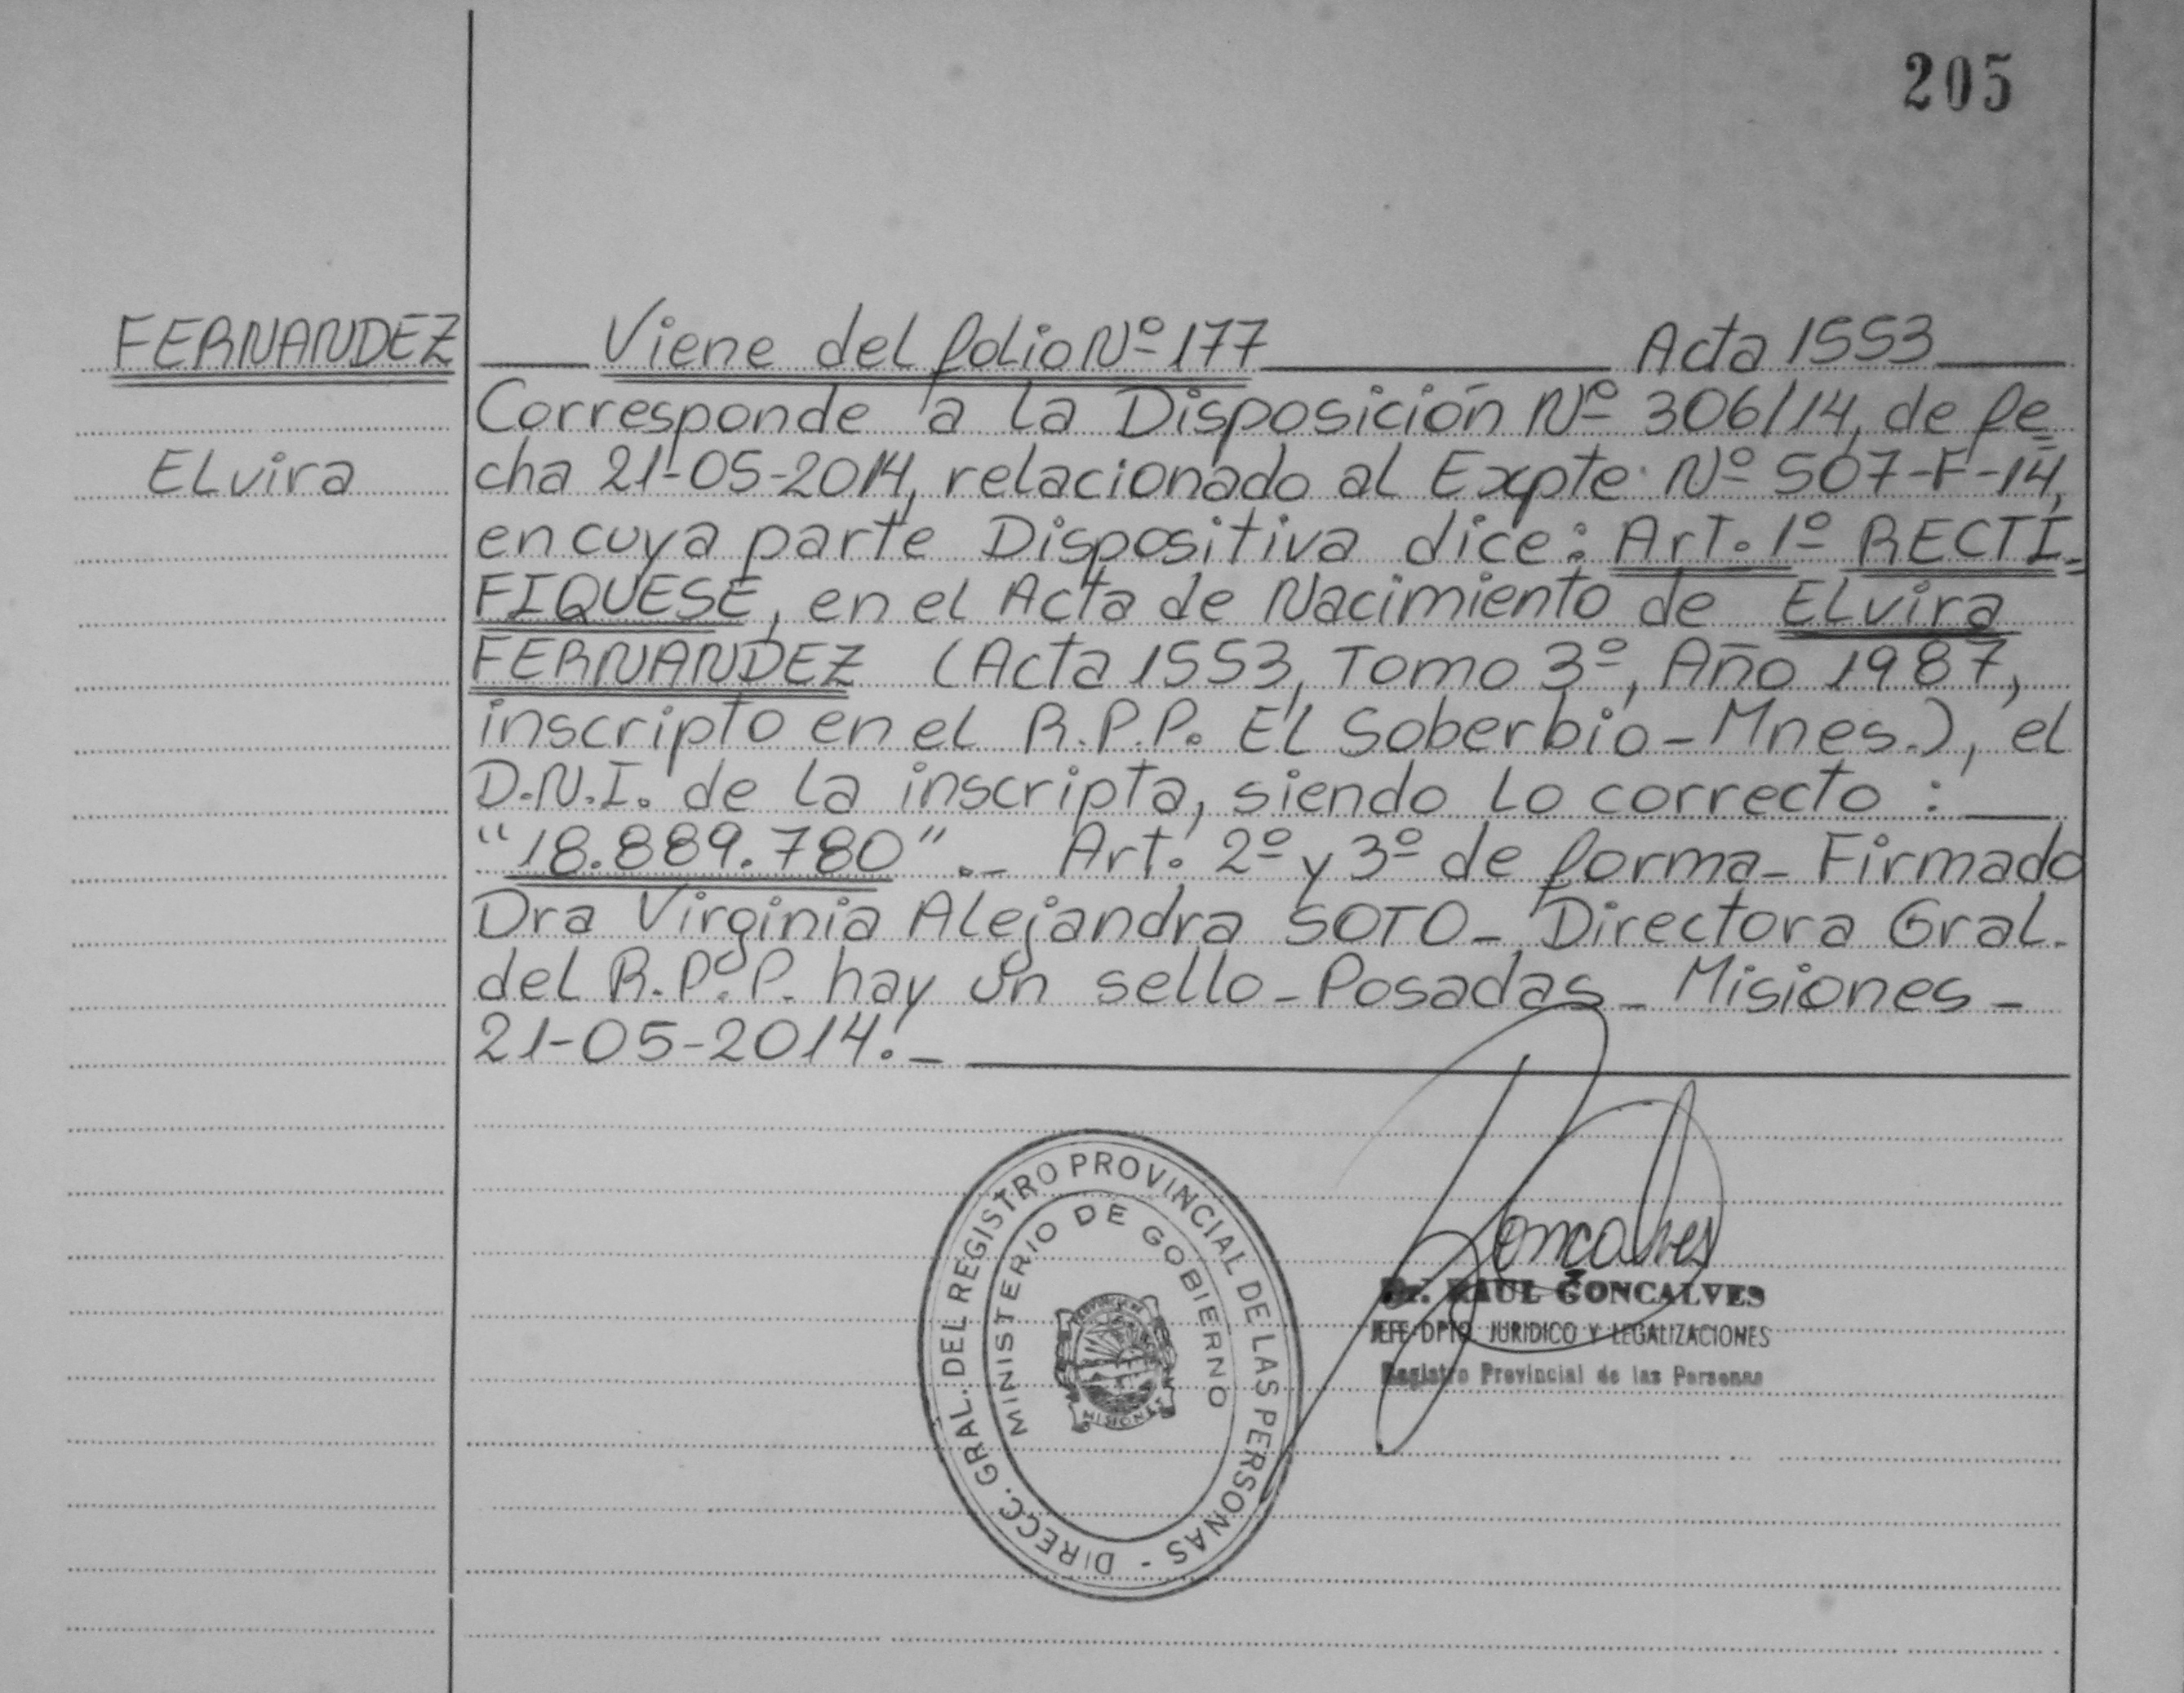 205
FERNANDEZ
Elvira
Viene del folio Nº 177 Acta 1553
Corresponde a la Disposición Nº 306/14, de fe=
cha 21-05-2014, relacionado al Expte. Nº 507-F-14,
en cuya parte Dispositiva dice: Art. 1º RECTI=
FIQUESE, en el Acta de Nacimiento de Elvira
FERNANDEZ (Acta 1553, Tomo 3º, Año 1987,
inscripto en el R.P.P. El Soberbio - Mnes.), el
D.N.I. de la inscripta, siendo lo correcto:
"18.889.780".- Art. 2º y 3º de forma - Firmado
Dra Virginia Alejandra SOTO - Directora Gral.
del R.P.P. hay un sello - Posadas - Misiones -
21-05-2014.-
DIRECC. GRAL. DEL REGISTRO PROVINCIAL DE LAS PERSONAS -
MINISTERIO DE GOBIERNO
MISIONES
Goncalves
Dr. RAUL GONCALVES
JEFE DPTO. JURIDICO Y LEGALIZACIONES
Registro Provincial de las Personas